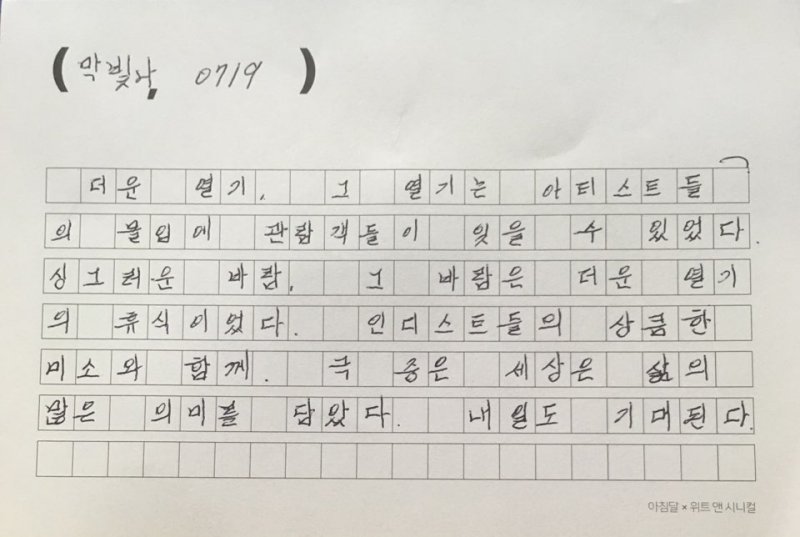 (막빛나, 0719)
더운 열기, 그 열기는 아티스트들
의 몰입에 관람객들이 잊을 수 있었다.
싱그러운 바람, 그 바람은 더운 열기
의 휴식이었다. 인디스트들의 상큼한
미소와 함께. 극 중은 세상은 삶의
많은 의미를 담았다. 내일도 기대된다.
아침달 × 위트 앤 시니컬